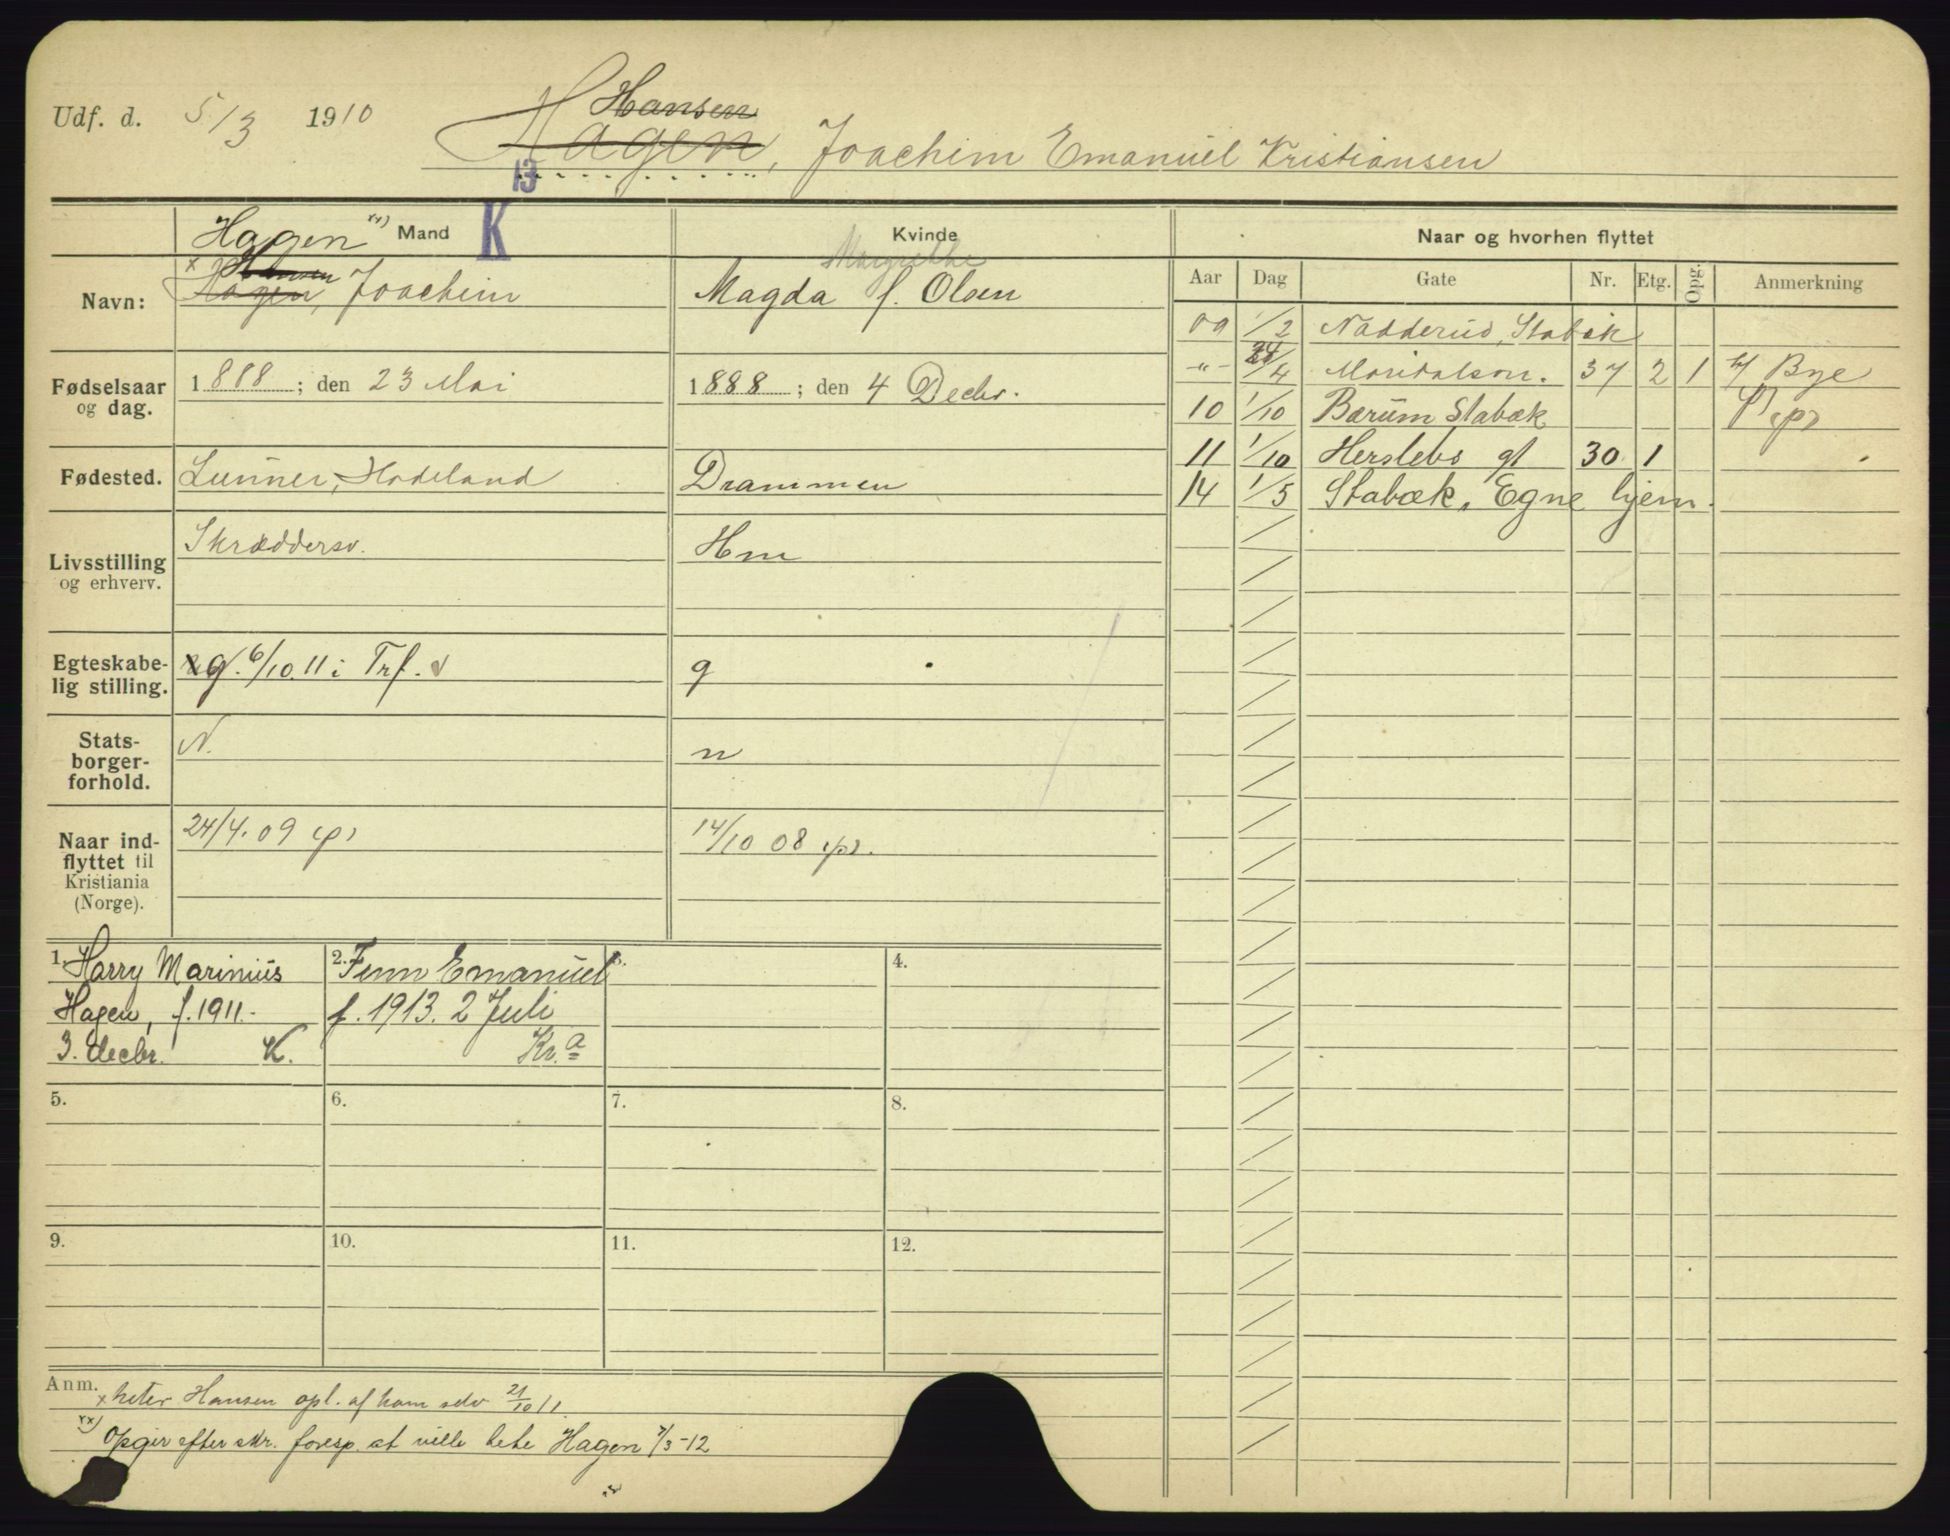 Udf. d. 5/3 1910
Hansen
Hagen, Joachim Emanuel Kristiansen
13
K
Hagen xx) Mand
Kvinde
Naar og hvorhen flyttet
Navn:
x Hansen
Hagen, Joachim
Margrethe
Magda f. Olsen
Aar Dag Gate Nr. Etg. Opg. Anmerkning
09 1/2 Nadderud, Stabæk
-"- 24/4 Maridalsvn. 37 2 1 h/ Bye
10 1/10 Bærum Stabæk (p)
11 1/10 Herslebs gt 30 1
14 1/5 Stabæk, Egne hjem.
Fødselsaar og dag.
1888; den 23 Mai
1888; den 4 Decbr.
Fødested.
Lunner, Hadeland
Drammen
Livsstilling og erhverv.
Skræddersv.
Hm
Egteskabe-
lig stilling.
g. 6/10.11 i Trf.
g
Stats-
borger-
forhold.
N.
n
Naar ind-
flyttet til
Kristiania
(Norge).
24/4.09 (p)
14/10 08 (p).
1. Harry Marinius
Hagen, f. 1911.-
3. decbr. K.
2. Finn Emanuel
f. 1913. 2 Juli
Kr.a
3.
4.
5.
6.
7.
8.
9.
10.
11.
12.
Anm. x heter Hansen opl. af ham selv 21/10 11.
xx) Opgir efter skr. foresp. at ville hete Hagen 7/3-12